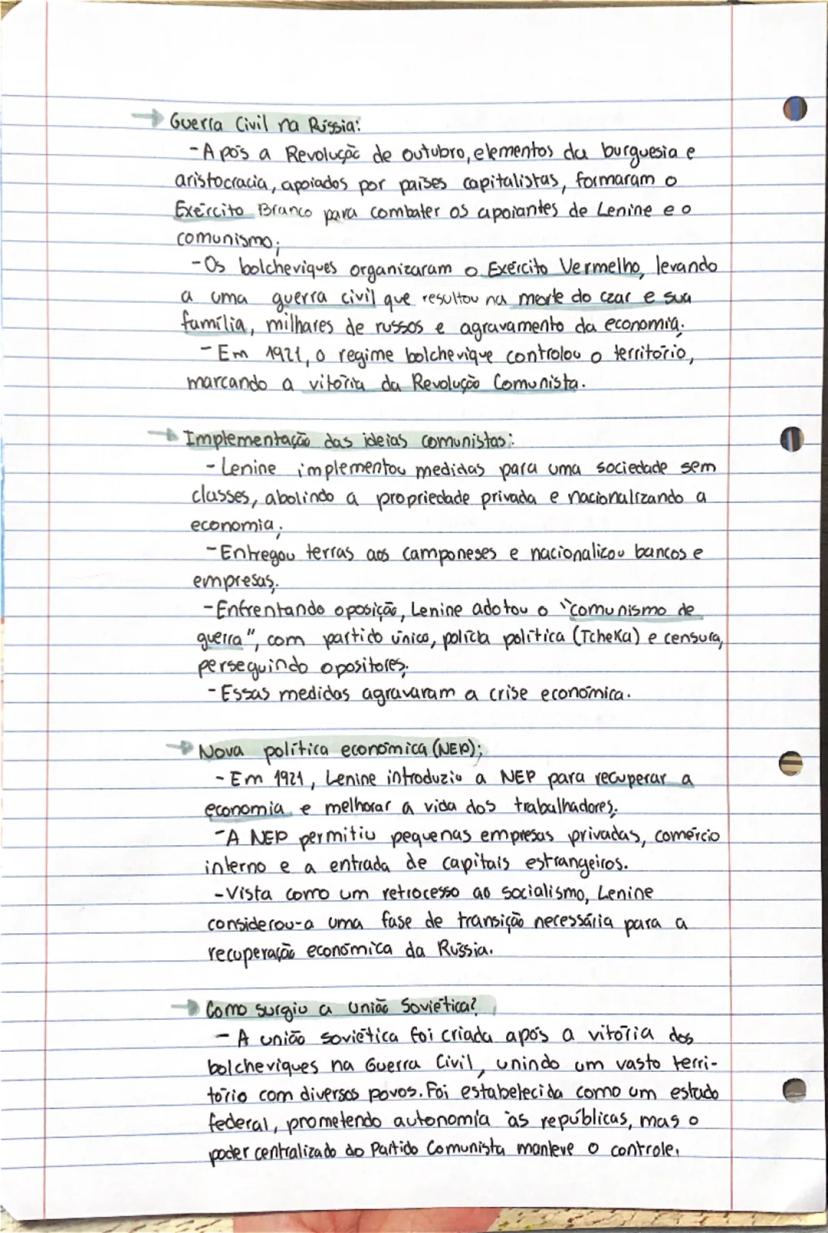 → Guerra Civil na Rússia:
- Após a Revolução de outubro, elementos da burguesia e
aristocracia, apoiados por países capitalistas, formaram o
Exército Branco para combater os apoiantes de Lenine e o
comunismo;
- Os bolcheviques organizaram o Exército Vermelho, levando
a uma guerra civil que resultou na morte do czar e sua
família, milhares de russos e agravamento da economia;
- Em 1921, o regime bolchevique controlou o território,
marcando a vitória da Revolução Comunista.
→ Implementação das ideias comunistas:
- Lenine implementou medidas para uma sociedade sem
classes, abolindo a propriedade privada e nacionalizando a
economia;
- Entregou terras aos camponeses e nacionalizou bancos e
empresas;
- Enfrentando oposição, Lenine adotou o "comunismo de
guerra", com partido único, polícia política (Tcheka) e censura,
perseguindo opositores;
- Essas medidas agravaram a crise económica.
→ Nova política económica (NEP);
- Em 1921, Lenine introduziu a NEP para recuperar a
economia e melhorar a vida dos trabalhadores;
- A NEP permitiu pequenas empresas privadas, comércio
interno e a entrada de capitais estrangeiros.
- Vista como um retrocesso ao socialismo, Lenine
considerou-a uma fase de transição necessária para a
recuperação económica da Rússia.
→ Como surgiu a união Soviética?
- A união soviética foi criada após a vitória dos
bolcheviques na Guerra Civil, unindo um vasto terri-
tório com diversos povos. Foi estabelecida como um estado
federal, prometendo autonomia às repúblicas, mas o
poder centralizado do Partido Comunista manteve o controle.